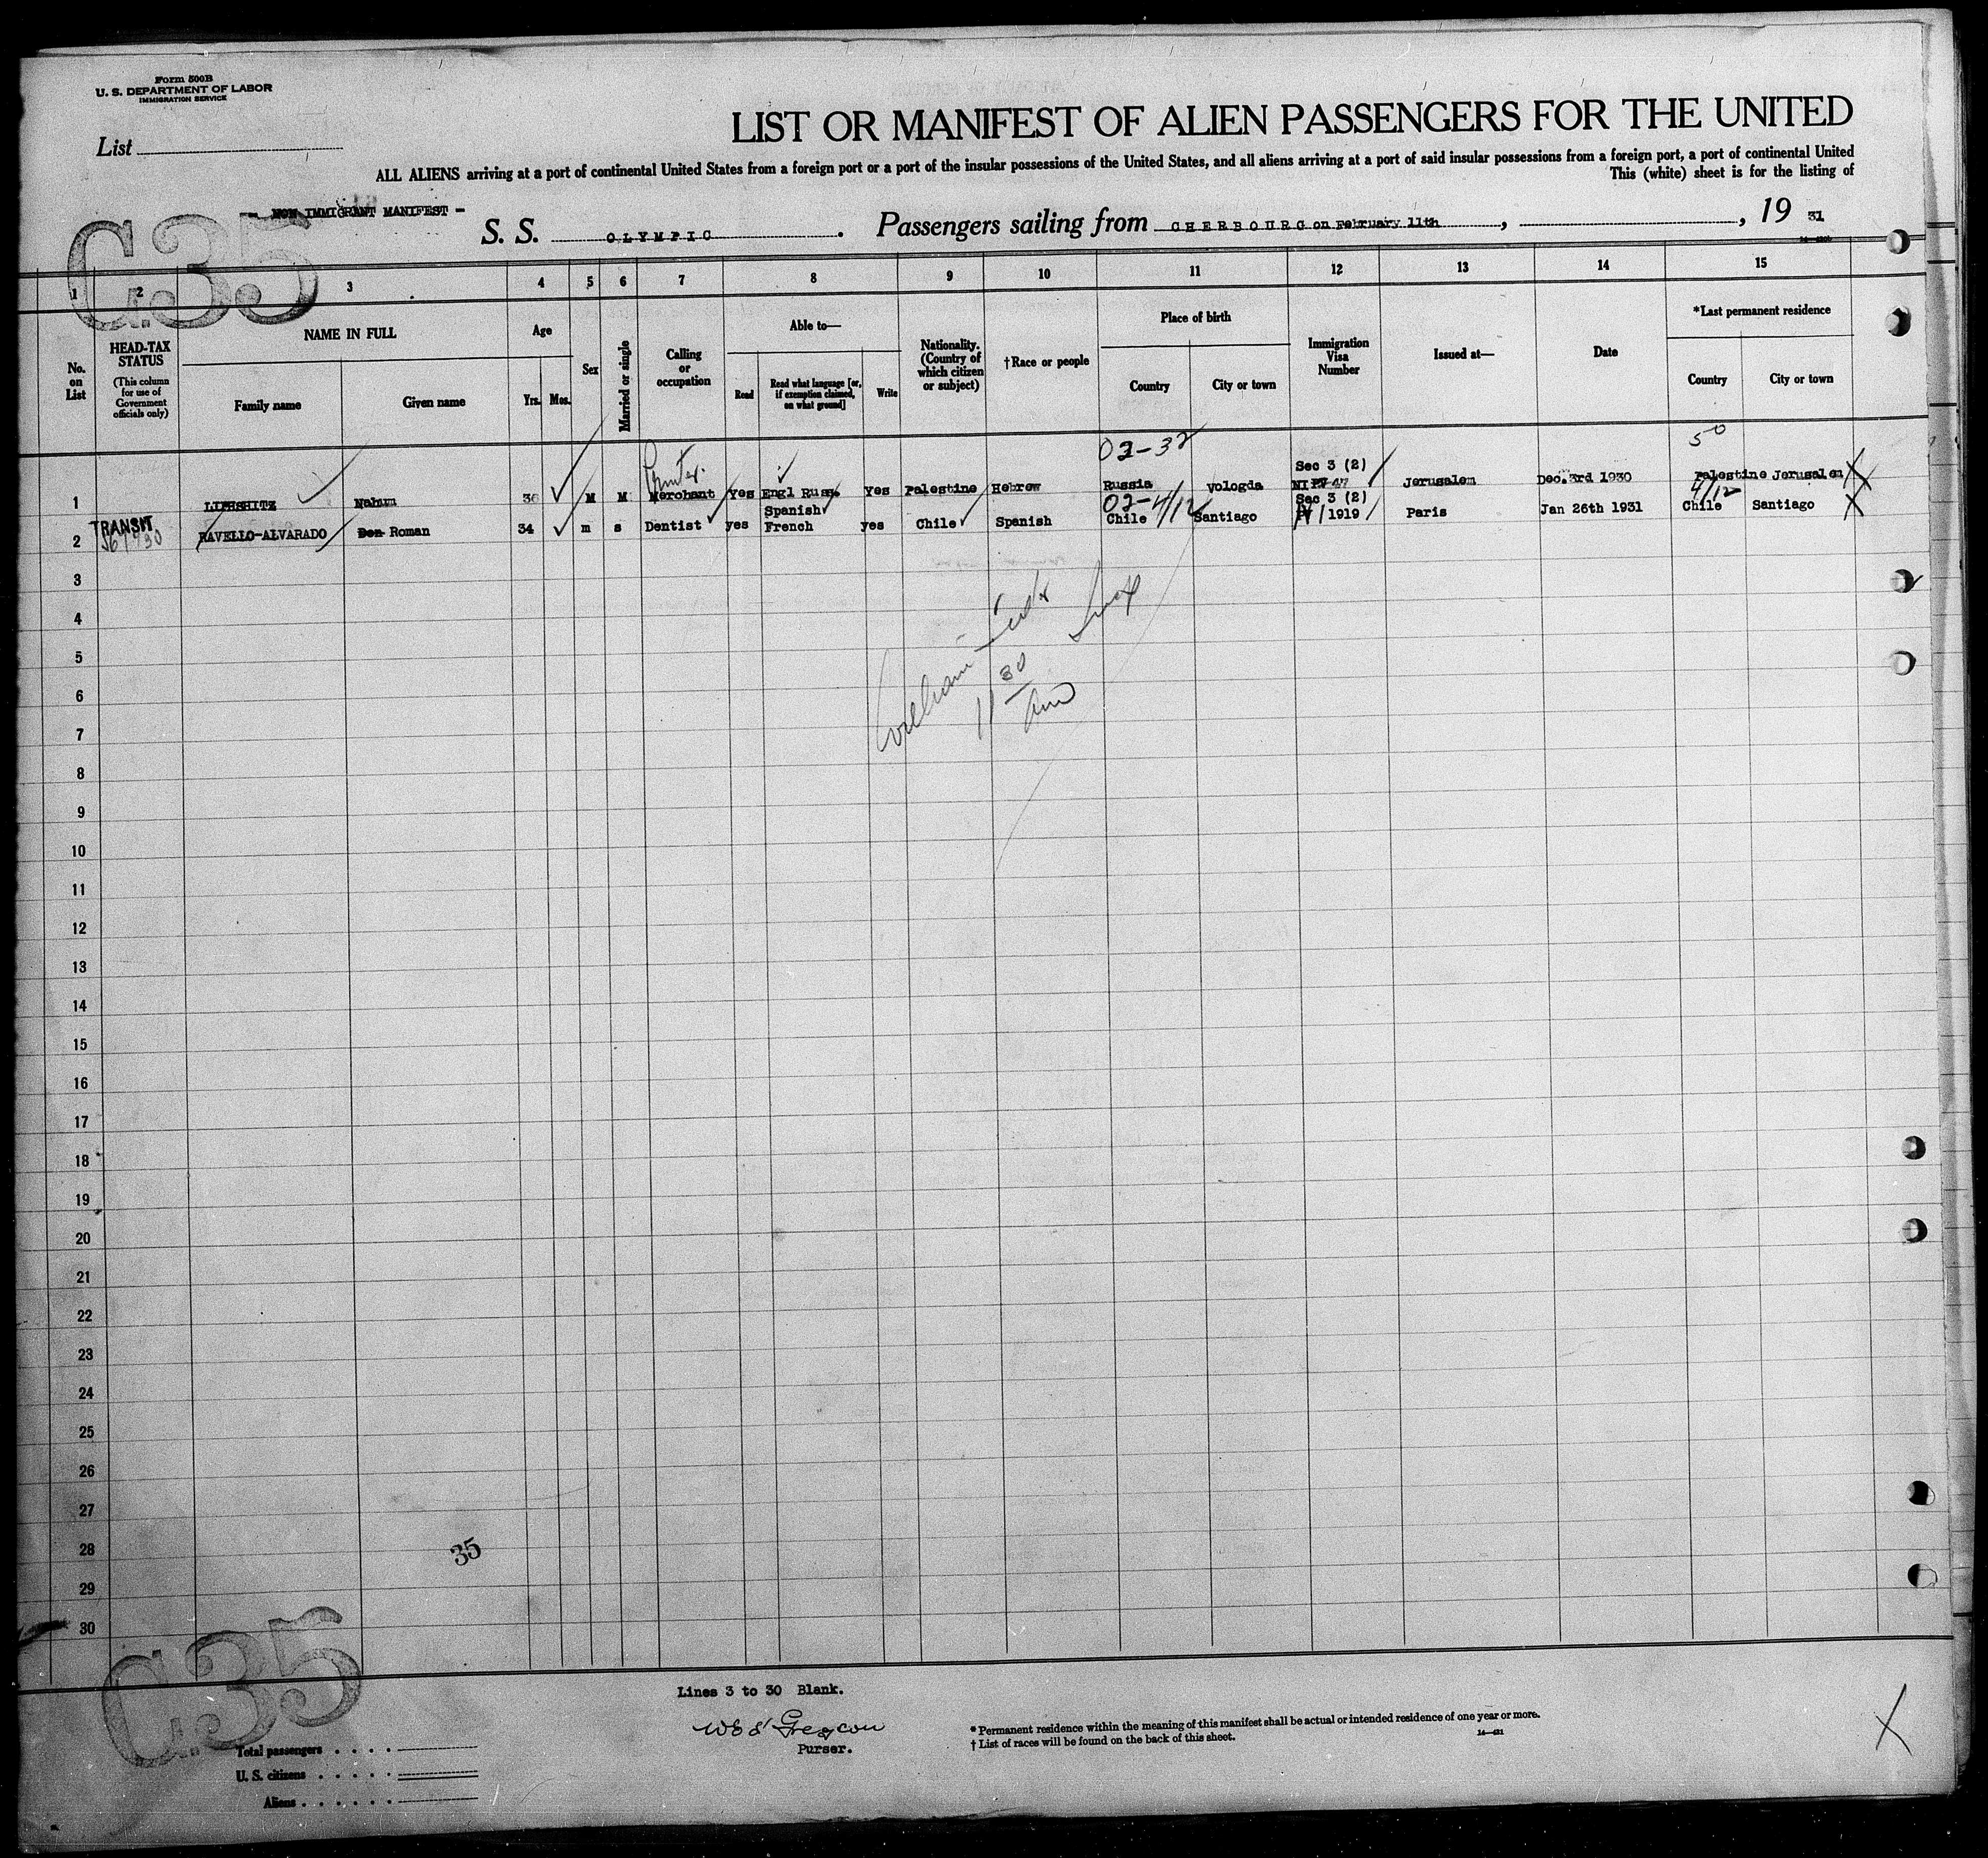 Form 500B
U. S. DEPARTMENT OF LABOR
IMMIGRATION SERVICE
LIST OR MANIFEST OF ALIEN PASSENGERS FOR THE UNITED
List
ALL ALIENS arriving at a port of continental United States from a foreign port or a port of the insular possessions of the United States, and all aliens arriving at a port of said insular possessions from a foreign port, a port of continental United
This (white) sheet is for the listing of
- NON IMMIGRANT MANIFEST -
G35
S. S. OLYMPIC. Passengers sailing from CHERBOURG on February 11th, , 19 31
1 2 3 4 5 6 7 8 9 10 11 12 13 14 15
No. on List
HEAD-TAX STATUS
(This column for use of Government officials only)
NAME IN FULL
Family name Given name
Age
Yrs. Mos.
Sex
Married or single
Calling or occupation
Able to—
Read Read what language [or, if exemption claimed, on what ground] Write
Nationality. (Country of which citizen or subject)
†Race or people
Place of birth
Country City or town
Immigration Visa Number
Issued at—
Date
*Last permanent residence
Country City or town
02-32 50
Printer. Sec 3 (2)
1 LIFHSHITZ Nahum 36 M M Merchant Yes Engl Russ. Yes Palestine Hebrew Russia Vologda NI 47 Jerusalem Dec. 3rd 1930 Palestine Jerusalem
Spanish 02-4/12 Sec 3 (2) 4/12
2 TRANSIT RAVELLO-ALVARADO Don Roman 34 m s Dentist yes French yes Chile Spanish Chile Santiago 1919 Paris Jan 26th 1931 Chile Santiago
3
4
5
6
7
8
9
10
11
12
13
14
15
16
17
18
19
20
21
22
23
24
25
26
27
28
29
30
11 30
35
G35
Lines 3 to 30 Blank.
Purser.
Total passengers
U. S. citizens
Aliens
* Permanent residence within the meaning of this manifest shall be actual or intended residence of one year or more.
† List of races will be found on the back of this sheet.